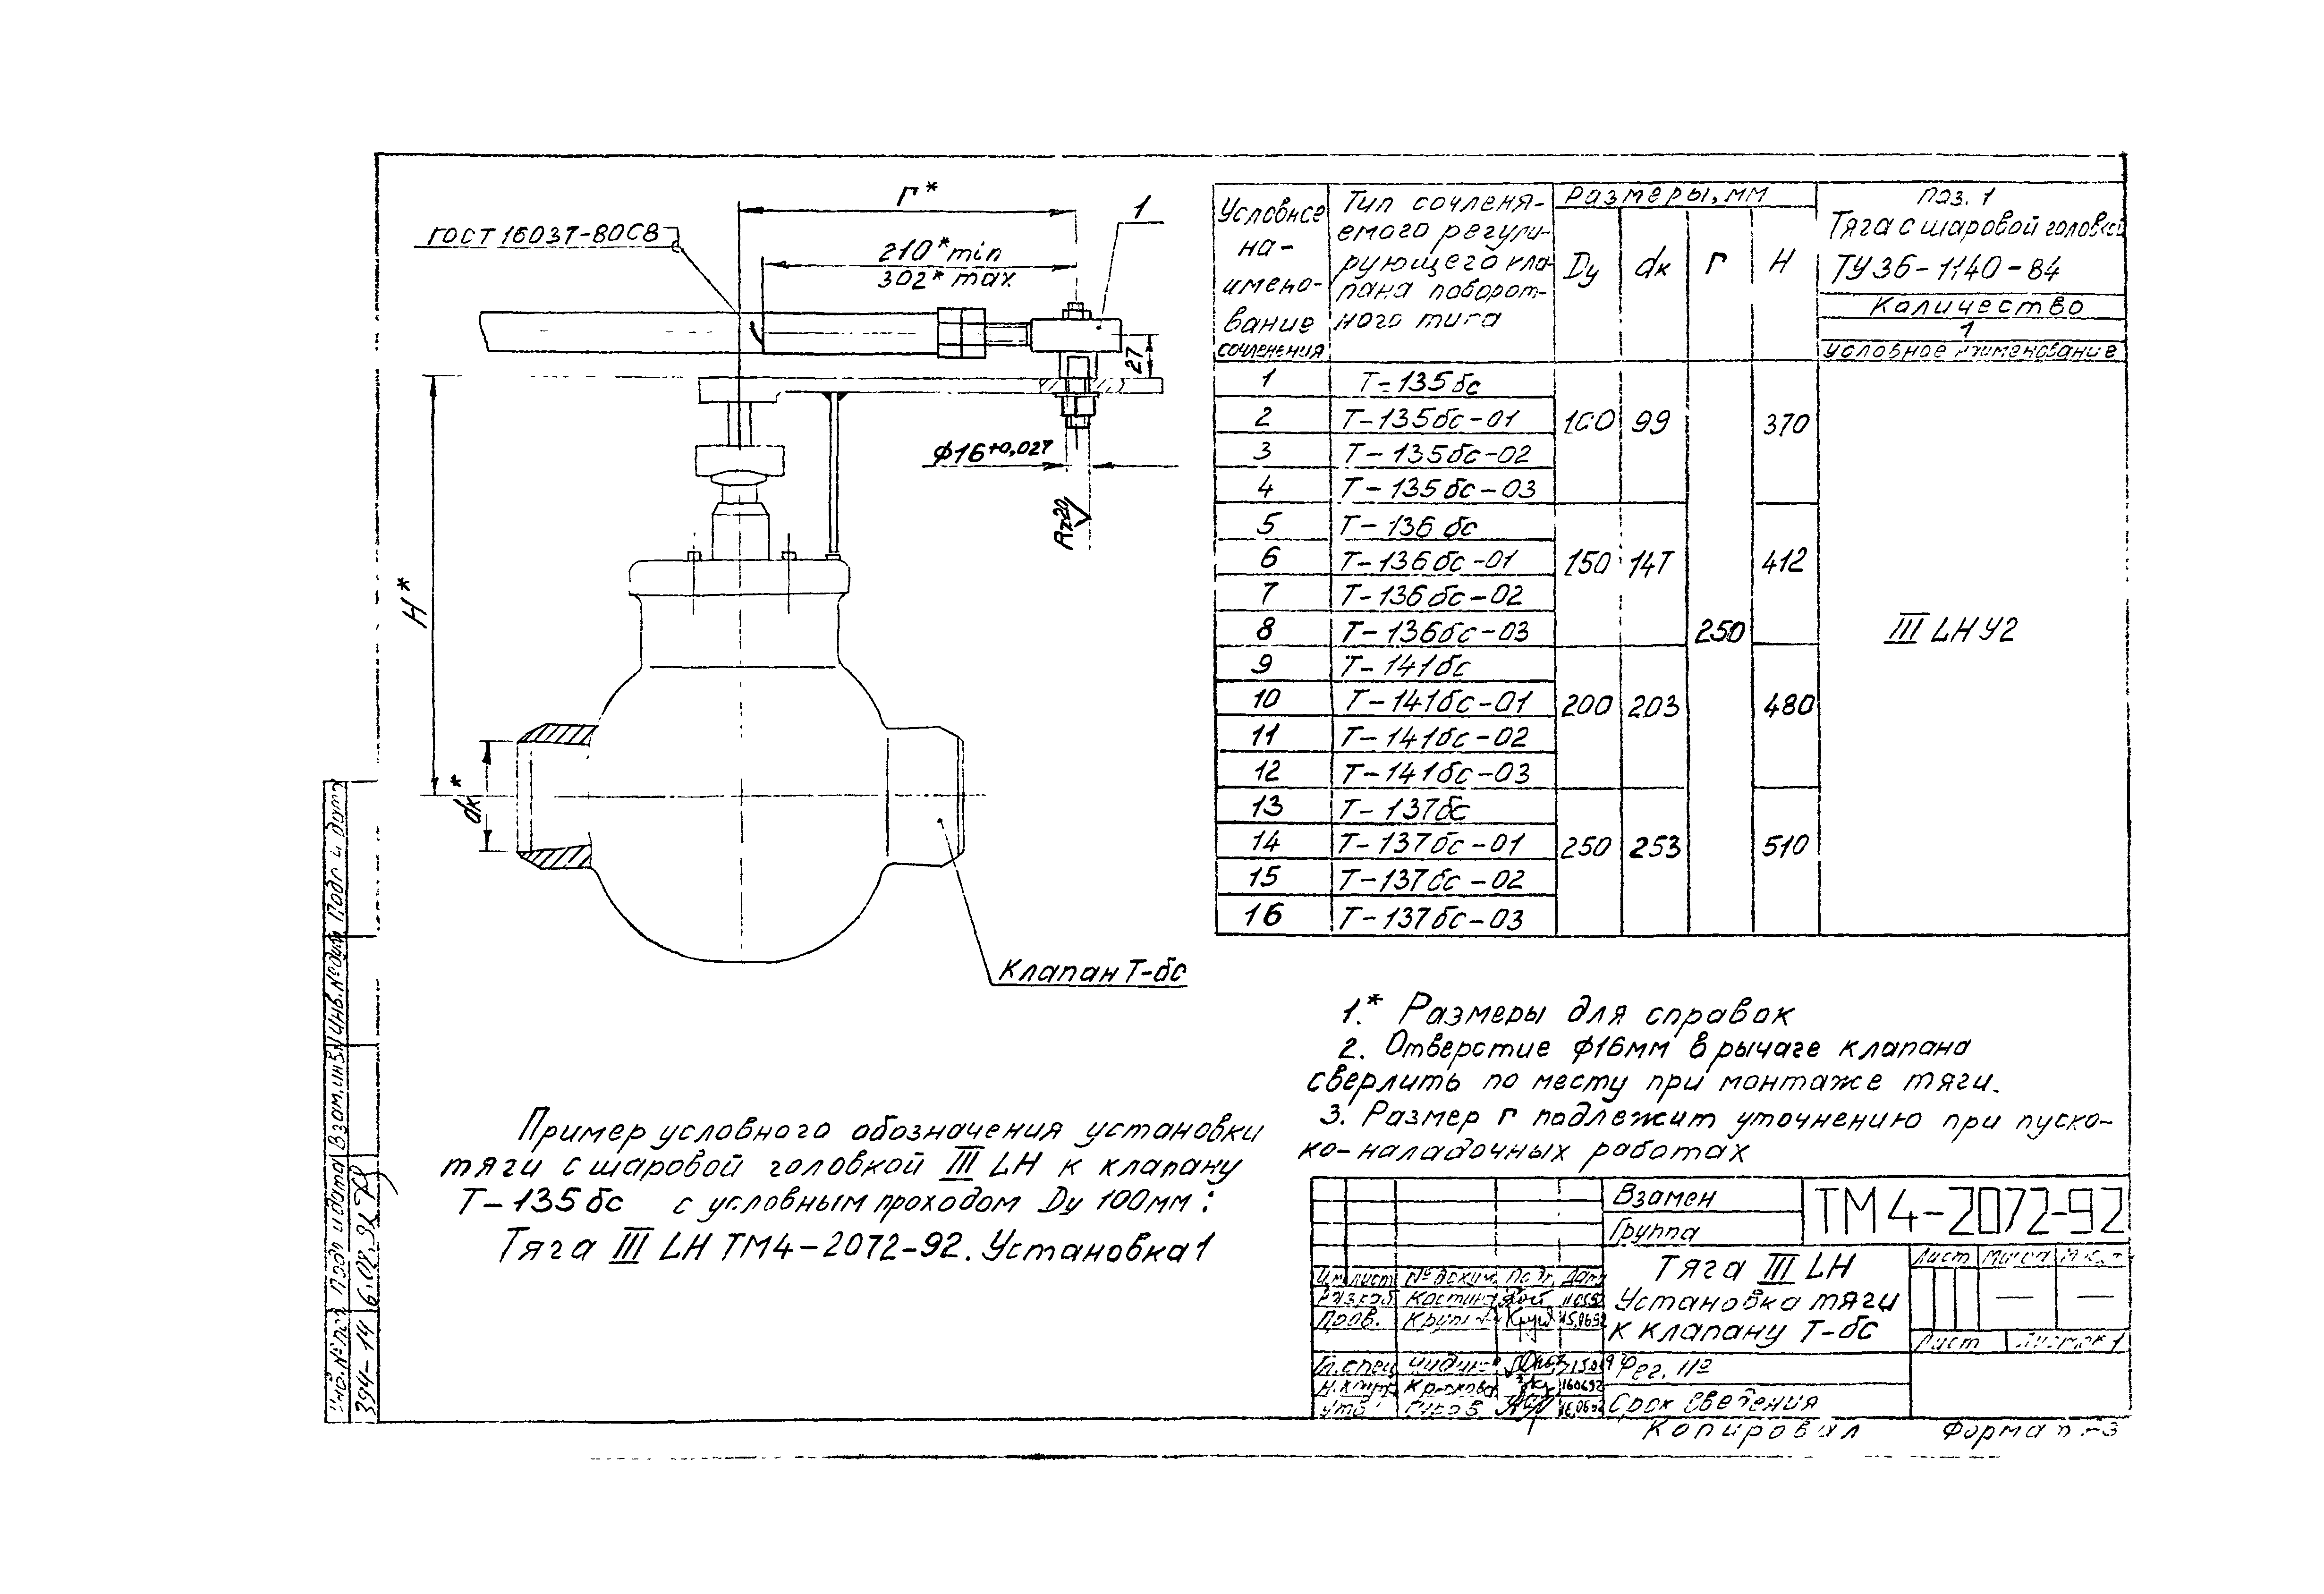 г*
ГОСТ 16037-80С8
210*min
302* max
1
27
H*
ϕ16+0,027
Rz20
dк*
Клапан Т-бс
Условное на-именование сочленения
Тип сочленя-
емого регули-
рующего кла-
пана поворот-
ного типа
Размеры, мм
Dу dк г H
поз. 1
Тяга с шаровой головкой
ТУ36-1140-84
Количество
1
условное наименование
1 Т-135бс
2 Т-135бс-01
3 Т-135бс-02
4 Т-135бс-03
100 99 370
5 Т-136бс
6 Т-136бс-01
7 Т-136бс-02
8 Т-136бс-03
150 147 412
250
III LH У2
9 Т-141бс
10 Т-141бс-01
11 Т-141бс-02
12 Т-141бс-03
200 203 480
13 Т-137бс
14 Т-137бс-01
15 Т-137бс-02
16 Т-137бс-03
250 253 510
1.* Размеры для справок
2. Отверстие ϕ16мм в рычаге клапана
сверлить по месту при монтаже тяги.
3. Размер г подлежит уточнению при пуско-
ко-наладочных работах
Пример условного обозначения установки
тяги с шаровой головкой III LH к клапану
Т-135бс с условным проходом Dу 100мм:
Тяга III LH ТМ4-2072-92. Установка 1
Взамен
Группа
ТМ4-2072-92
Тяга III LH
Установка тяги
к клапану Т-бс
Лист Масса
— —
Лист Листов 1
№ докум. Подп. Дата
Разраб.
Пров. 15.0692
Гл.спец
Н.контр 160692
Утв. 16.0692
Рег. №
Срок введения
Копировал Формат
Подп. и дата
Инв.№дубл
Взам.инв.№
Подп. и дата
Инв.№подл
394-14